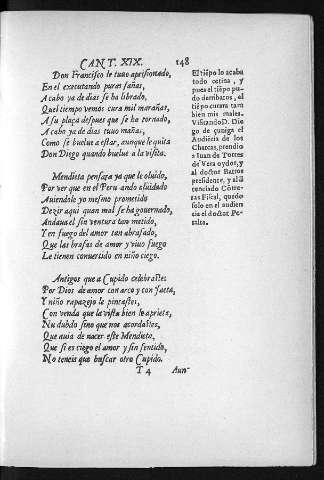 CANT. XIX. 148
Don Francisco le tuuo aprisionado,
En el executando puras sañas,
A cabo ya de dias se ha librado,
Quel tiempo vemos cura mil marañas,
A su plaça despues que se ha tornado,
A cabo ya de dias tuuo mañas,
Como se buelue a estar, aunque le quita
Don Diego quando buelue a la visita.
Mendieta pensara ya que le oluido,
Por ver que en el Peru ando asluidado
Auiendole yo mesmo prometido
Dezir aqui quan mal se ha gouernado,
Andaua el sin ventura tan metido,
Y en fuego del amor tan abrasado,
Que las brasas de amor y viuo fuego
Le tienen conuertido en niño ciego.
Antigos que a Cupido celebrastes
Por Dios de amor con arco y con saeta,
Y niño rapazejo le pintastes,
Con venda que la vista bien le aprieta,
No dubdo sino que nos acordastes,
Que auia de nacer este Mendieta,
Que si es ciego el amor y sin sentido,
No teneis que buscar otro Cupido.
T 4 Aun-
El tiẽpo lo acaba
todo octina, y
pues el tiẽpo pu-
do derribaros, el
tiẽpo curara tam
bien mis males.
VisitandoD. Die
go de çuniga el
Audiēcia de los
Charcas, prendio
a Iuan de Torres
de Vera oydor, y
al doctor Barros
presidente, y al li
cenciado Cõtre-
ras Fiscal, quedo
solo en el audien
cia el doctor Pe-
ralta.